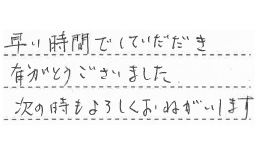 早い時間でしていだだき
有がとうございました
次の時もよろしくおねがいします